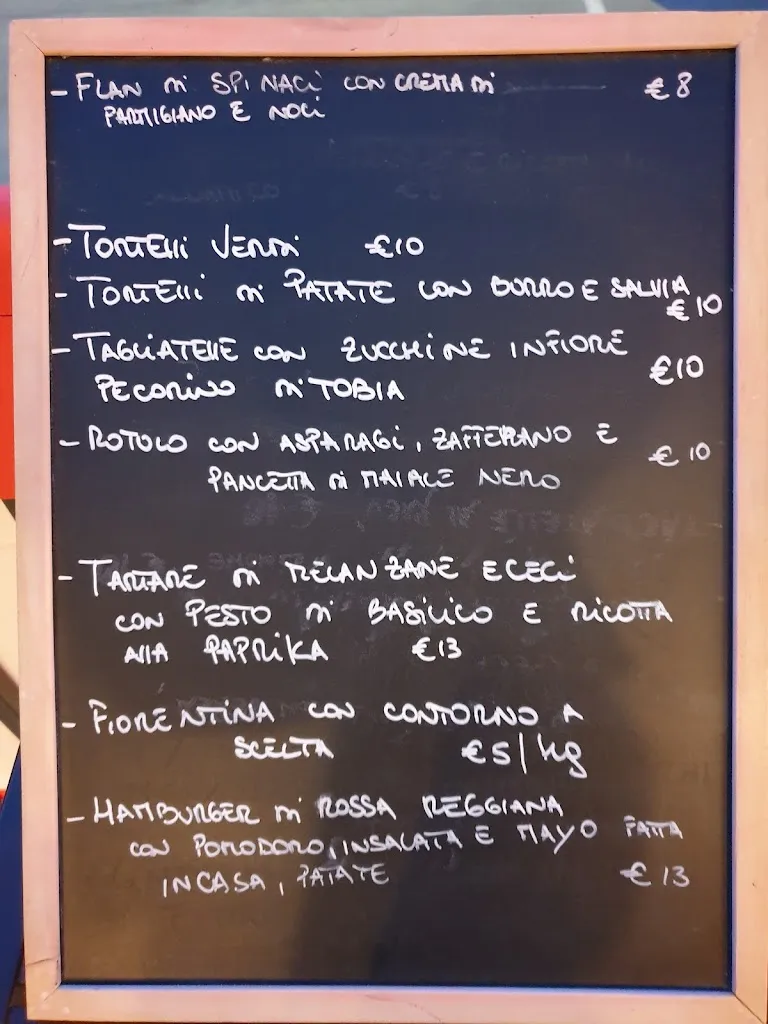 - FLAN DI SPINACI CON CREMA DI € 8
PARMIGIANO E NOCI
- TORTELLI VERDI €10
- TORTELLI DI PATATE CON BURRO E SALVIA
€ 10
- TAGLIATELLE CON ZUCCHINE IN FIORE
PECORINO DI TOBIA €10
- ROTOLO CON ASPARAGI, ZAFFERANO E
PANCETTA DI MAIALE NERO € 10
- TARTARE DI MELANZANE E CECI
CON PESTO DI BASILICO E RICOTTA
ALLA PAPRIKA €13
- FIORENTINA CON CONTORNO A
SCELTA €5/hg
- HAMBURGER DI ROSSA REGGIANA
CON POMODORO, INSALATA E MAYO FATTA
IN CASA, PATATE € 13